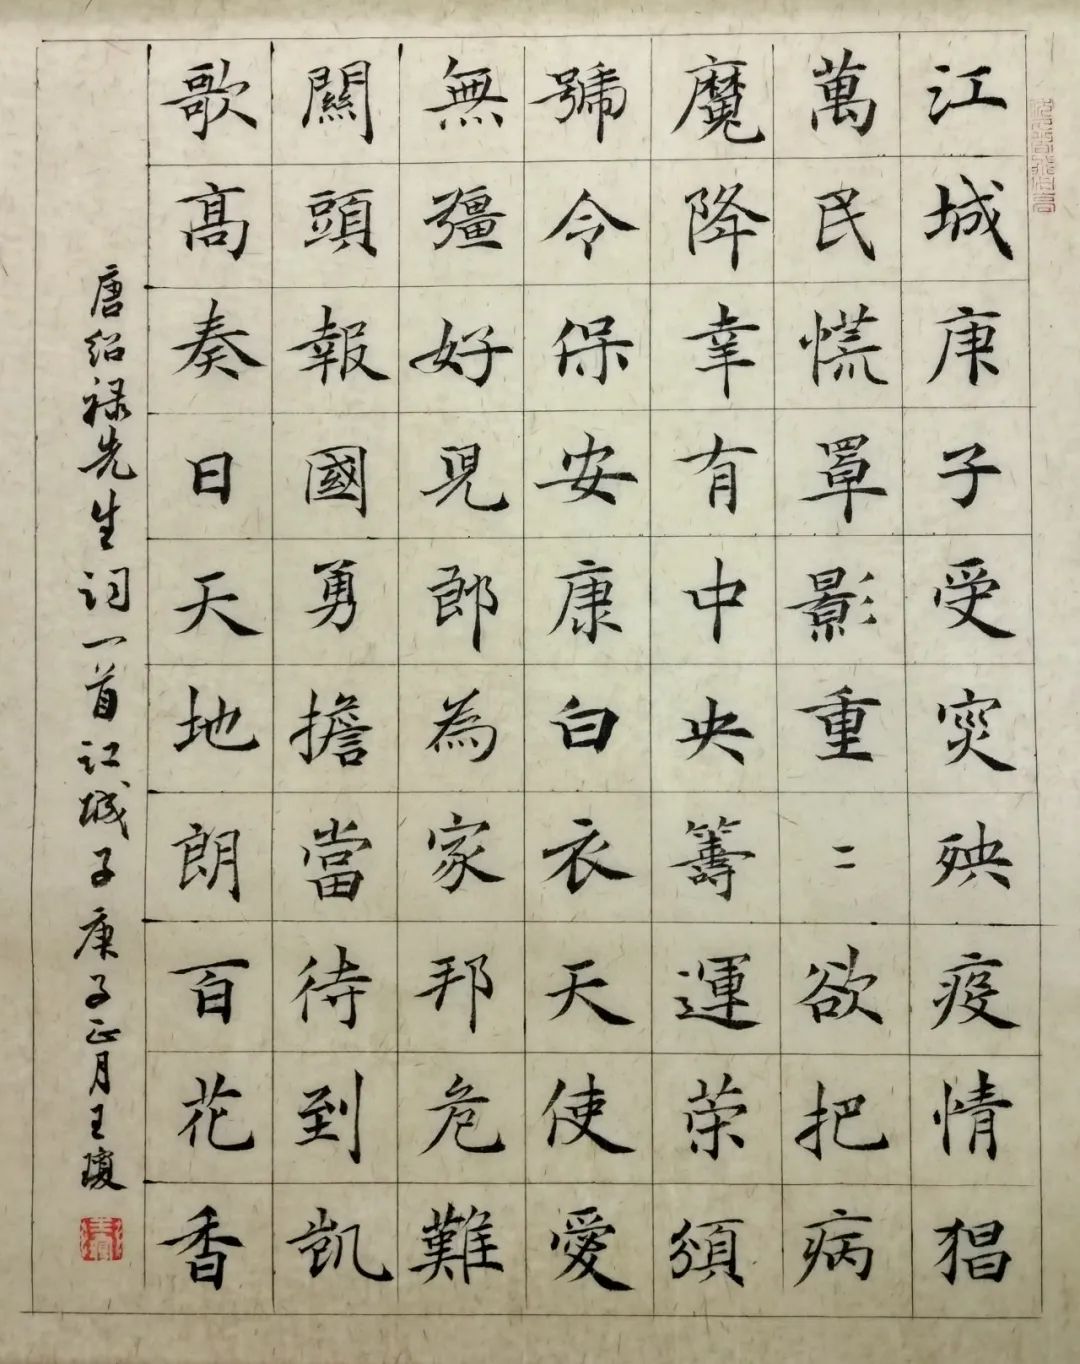 江城庚子受突殃疫情猖
萬民慌罩影重二欲把病
魔降幸有中央籌運荣須
號令保安康白衣天使愛
無彊好児郎為家邦危難
關頭報國勇擔當待到凱
歌高奏日天地朗百花香
唐绍禄先生词一首江城子庚子正月王琼